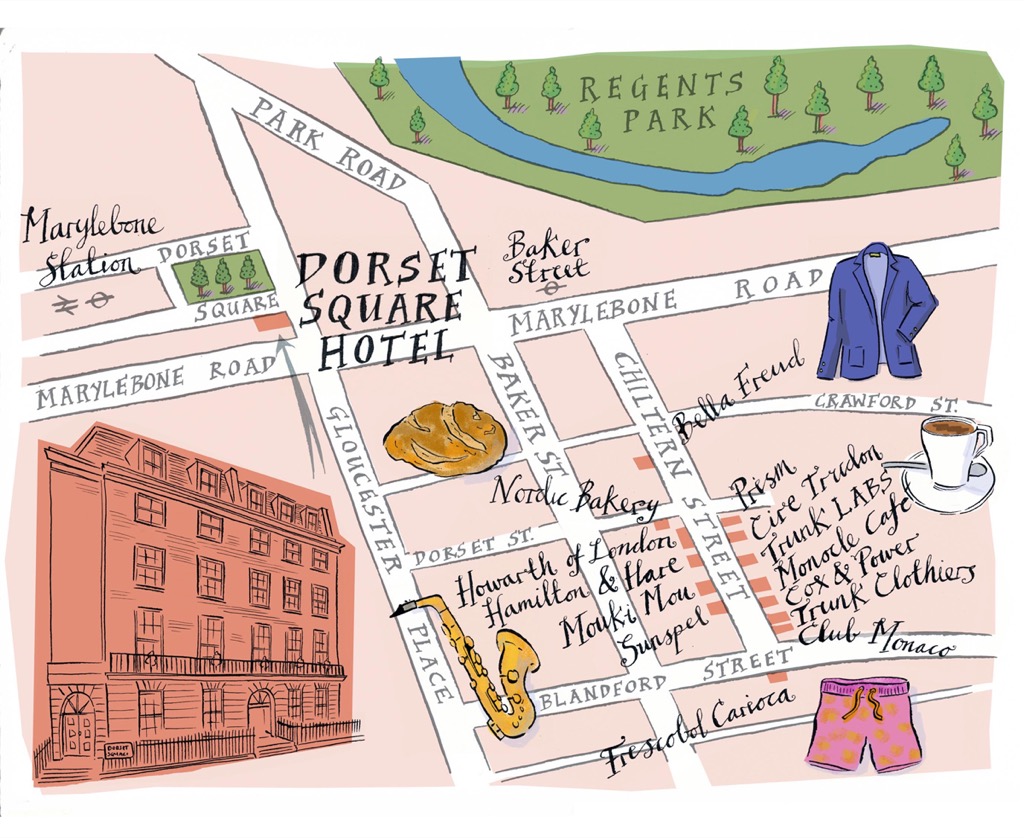 REGENTS
PARK
PARK ROAD
Marylebone
Station
DORSET
SQUARE
DORSET
SQUARE
HOTEL
Baker
Street
MARYLEBONE ROAD
MARYLEBONE ROAD
BAKER ST.
CHILTERN STREET
GLOUCESTER
PLACE
Bella Freud
CRAWFORD ST.
Nordic Bakery
DORSET ST.
Prism
Cire Trudon
Trunk LABS
Monocle Cafe
Cox & Power
Trunk Clothiers
Club Monaco
Howarth of London
Hamilton & Hare
Mouki Mou
Sunspel
BLANDFORD STREET
Frescobol Carioca
DORSET
SQUARE